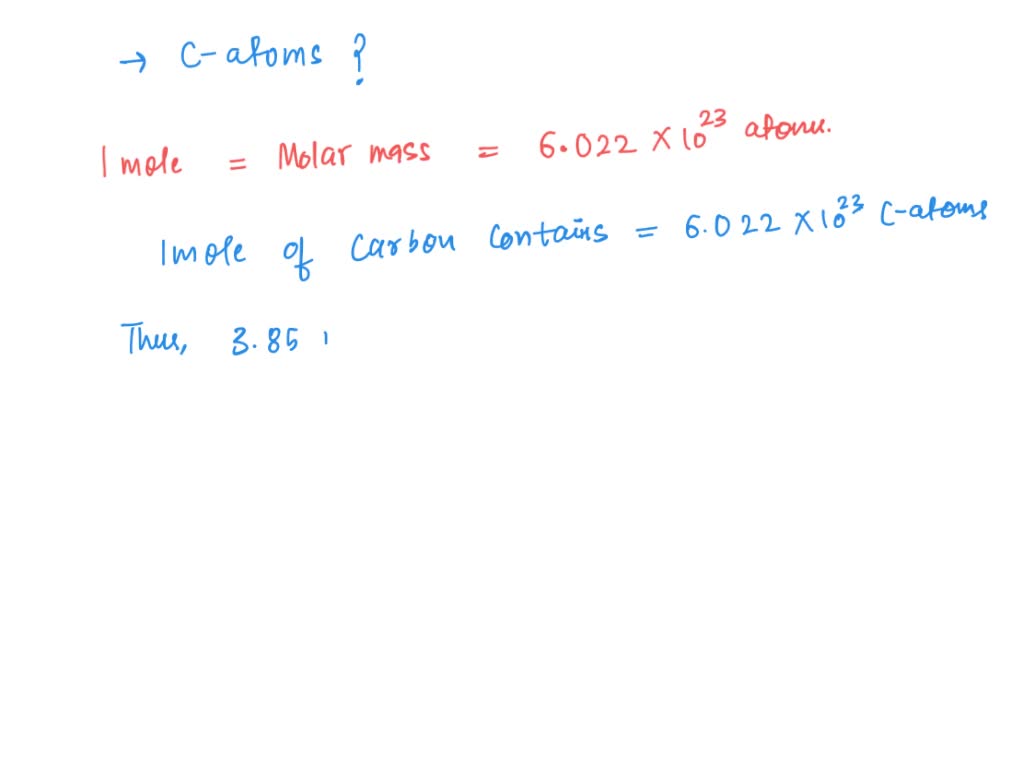 → C-atoms ?
1 mole = Molar mass = 6.022 × 10²³ atoms.
1 mole of Carbon Contains = 6.022 × 10²³ C-atoms
Thus, 3.85